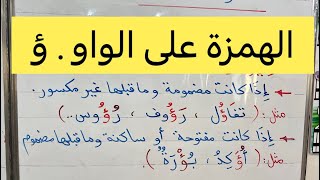 الهمزة على الواو . ؤ
إذا كانت مضمومة وماقبلها غير مكسور.
مثل: ( تفاؤُل ، رَؤُوف ، رُؤُوس ..)
إذا كانت مفتوحة أو ساكنة وماقبلها مضموم
مثل: ( أُؤَكِّدُ ، بُؤْرَةٌ ).